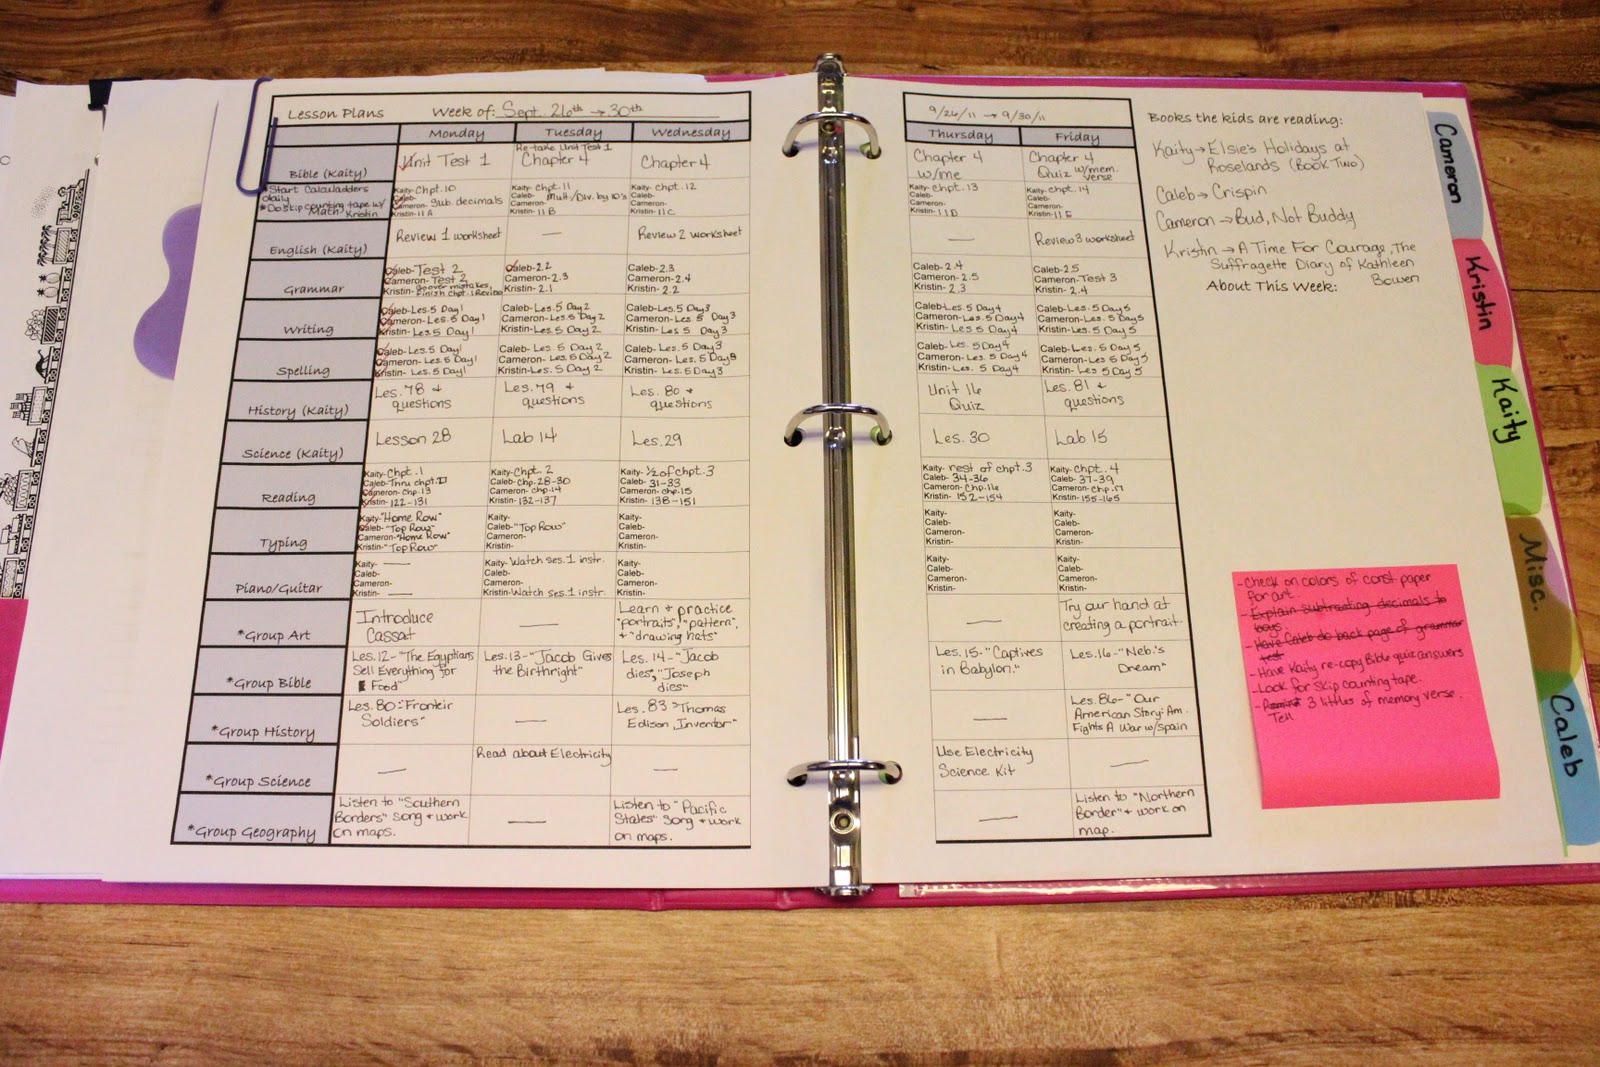 Lesson Plans Week of: Sept. 26th → 30th
Monday Tuesday Wednesday
Bible (Kaity)
Unit Test 1
Re-take Unit Test 1
Chapter 4
Chapter 4
*Start Calculadders
daily
*Do skip counting tape w/
Math Kristin
Kaity- Chpt. 10
Caleb-
Cameron- Sub. decimals
Kristin- 11A
Kaity- Chpt. 11
Caleb- Mult./Div. by 10's
Cameron-
Kristin- 11B
Kaity- Chpt. 12
Caleb-
Cameron-
Kristin- 11C
English (Kaity)
Review 1 worksheet
—
Review 2 worksheet
Grammar
Caleb- Test 2
Cameron- Test 2
Kristin- Go over mistakes,
Finish chpt. 1 Review
Caleb- 2.2
Cameron- 2.3
Kristin- 2.1
Caleb- 2.3
Cameron- 2.4
Kristin- 2.2
Writing
Caleb- Les. 5 Day 1
Cameron- Les. 5 Day 1
Kristin- Les. 5 Day 1
Caleb- Les. 5 Day 2
Cameron- Les. 5 Day 2
Kristin- Les. 5 Day 2
Caleb- Les. 5 Day 3
Cameron- Les. 5 Day 3
Kristin- Les. 5 Day 3
Spelling
Caleb- Les. 5 Day 1
Cameron- Les. 5 Day 1
Kristin- Les. 5 Day 1
Caleb- Les. 5 Day 2
Cameron- Les. 5 Day 2
Kristin- Les. 5 Day 2
Caleb- Les. 5 Day 3
Cameron- Les. 5 Day 3
Kristin- Les. 5 Day 3
History (Kaity)
Les. 78 +
questions
Les. 79 +
questions
Les. 80 +
questions
Science (Kaity)
Lesson 28
Lab 14
Les. 29
Reading
Kaity- Chpt. 1
Caleb- Thru chpt.
Cameron- chp. 13
Kristin- 122-131
Kaity- Chpt. 2
Caleb- Chp. 28-30
Cameron- chp. 14
Kristin- 132-137
Kaity- 1/2 of chpt. 3
Caleb- 31-33
Cameron- chp. 15
Kristin- 138-151
Typing
Kaity- "Home Row"
Caleb- "Top Row"
Cameron- "Home Row"
Kristin- "Top Row"
Kaity-
Caleb- "Top Row"
Cameron-
Kristin-
Kaity-
Caleb-
Cameron-
Kristin-
Piano/Guitar
Kaity- —
Caleb-
Cameron-
Kristin- —
Kaity- Watch ses. 1 instr.
Caleb-
Cameron-
Kristin- Watch ses. 1 instr.
Kaity-
Caleb-
Cameron-
Kristin-
*Group Art
Introduce
Cassat
—
Learn + practice
"portraits", "pattern",
+ "drawing hats"
*Group Bible
Les. 12- "The Egyptians
Sell Everything for
Food"
Les. 13- "Jacob Gives
the Birthright"
Les. 14- "Jacob
dies", "Joseph
dies"
*Group History
Les. 80: "Fronteir
Soldiers"
—
Les. 83 "Thomas
Edison, Inventor"
*Group Science
—
Read about Electricity
—
*Group Geography
Listen to "Southern
Borders" song + work
on maps.
—
Listen to "Pacific
States" song + work
on maps.
9/26/11 → 9/30/11
Thursday Friday
Chapter 4
w/me
Chapter 4
Quiz w/mem.
verse
Kaity- chpt. 13
Caleb-
Cameron-
Kristin- 11D
Kaity- chpt. 14
Caleb-
Cameron-
Kristin- 11E
—
Review 3 worksheet
Caleb- 2.4
Cameron- 2.5
Kristin- 2.3
Caleb- 2.5
Cameron- Test 3
Kristin- 2.4
Caleb- Les. 5 Day 4
Cameron- Les. 5 Day 4
Kristin- Les. 5 Day 4
Caleb- Les. 5 Day 5
Cameron- Les. 5 Day 5
Kristin- Les. 5 Day 5
Caleb- Les. 5 Day 4
Cameron- Les. 5 Day 4
Kristin- Les. 5 Day 4
Caleb- Les. 5 Day 5
Cameron- Les. 5 Day 5
Kristin- Les. 5 Day 5
Unit 16
Quiz
Les. 81 +
questions
Les. 30
Lab 15
Kaity- rest of chpt. 3
Caleb- 34-36
Cameron- Chp. 16
Kristin- 152-154
Kaity- chpt. 4
Caleb- 37-39
Cameron- chp. 17
Kristin- 155-165
Kaity-
Caleb-
Cameron-
Kristin-
Kaity-
Caleb-
Cameron-
Kristin-
Kaity-
Caleb-
Cameron-
Kristin-
Kaity-
Caleb-
Cameron-
Kristin-
—
Try our hand at
creating a portrait.
Les. 15- "Captives
in Babylon."
Les. 16- "Neb.'s
Dream"
—
Les. 86- "Our
American Story: Am.
Fights A War w/spain
Use Electricity
Science Kit
—
—
Listen to "Northern
Border" + work on
map.
Books the kids are reading:
Kaity → Elsie's Holidays at
Roselands (Book Two)
Caleb → Crispin
Cameron → Bud, Not Buddy
Kristin → A Time For Courage, The
Suffragette Diary of Kathleen
Bowen
About This Week:
-Check on colors of const. paper
for art.
-Explain subtracting decimals to
boys.
-Have Caleb do back page of grammar
test
-Have Kaity re-copy Bible quiz answers
-Look for skip counting tape.
-Remind 3 littles of memory verse.
Tell
Cameron
Kristin
Kaity
Misc.
Caleb